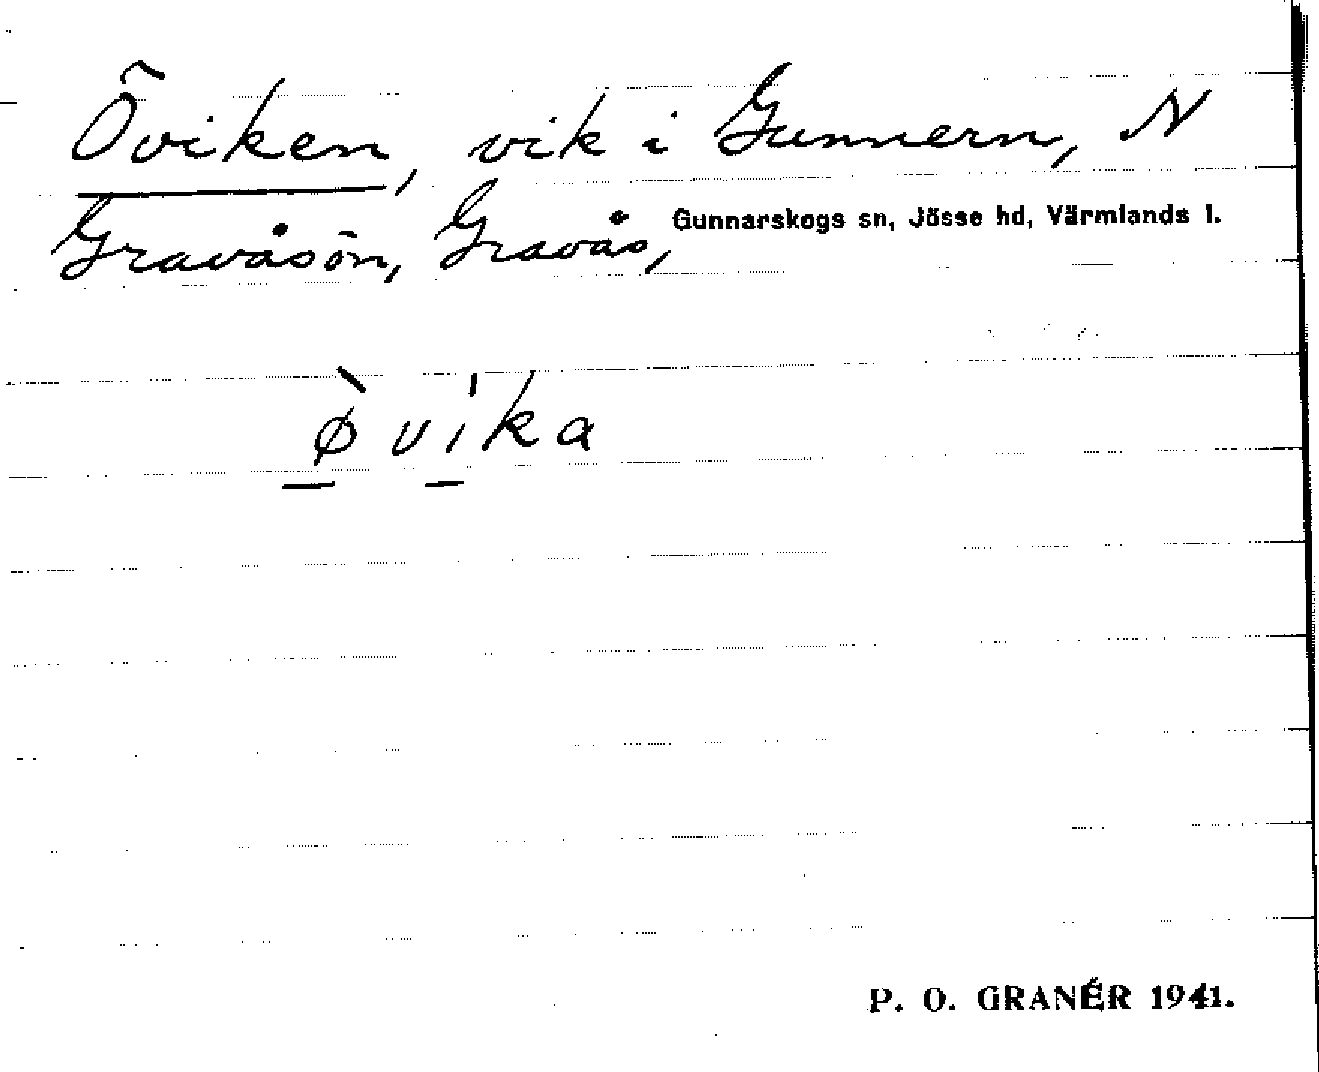 Öviken, vik i Gunnern, N
Gravåsön, Gravås, Gunnarskogs sn, Jösse hd, Värmlands l.
ø̀ vı̍ka
P. O. GRANÉR 1941.